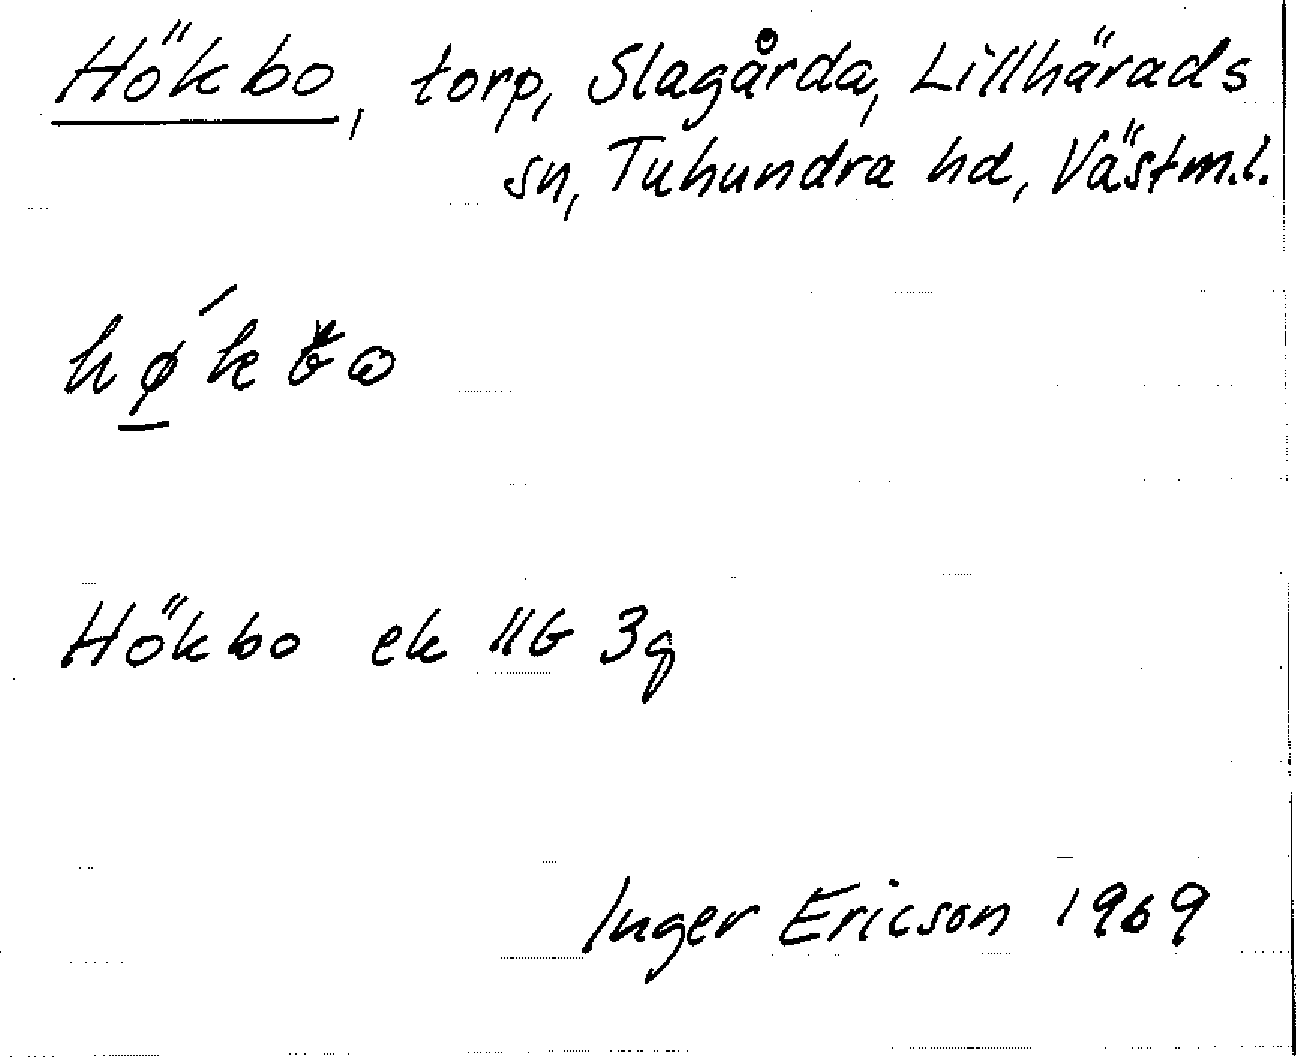 Hökbo, torp, Slagårda, Lillhärads
sn, Tuhundra hd, Västm.l.
Hökbo ek 11G 3g
Inger Ericson 1969